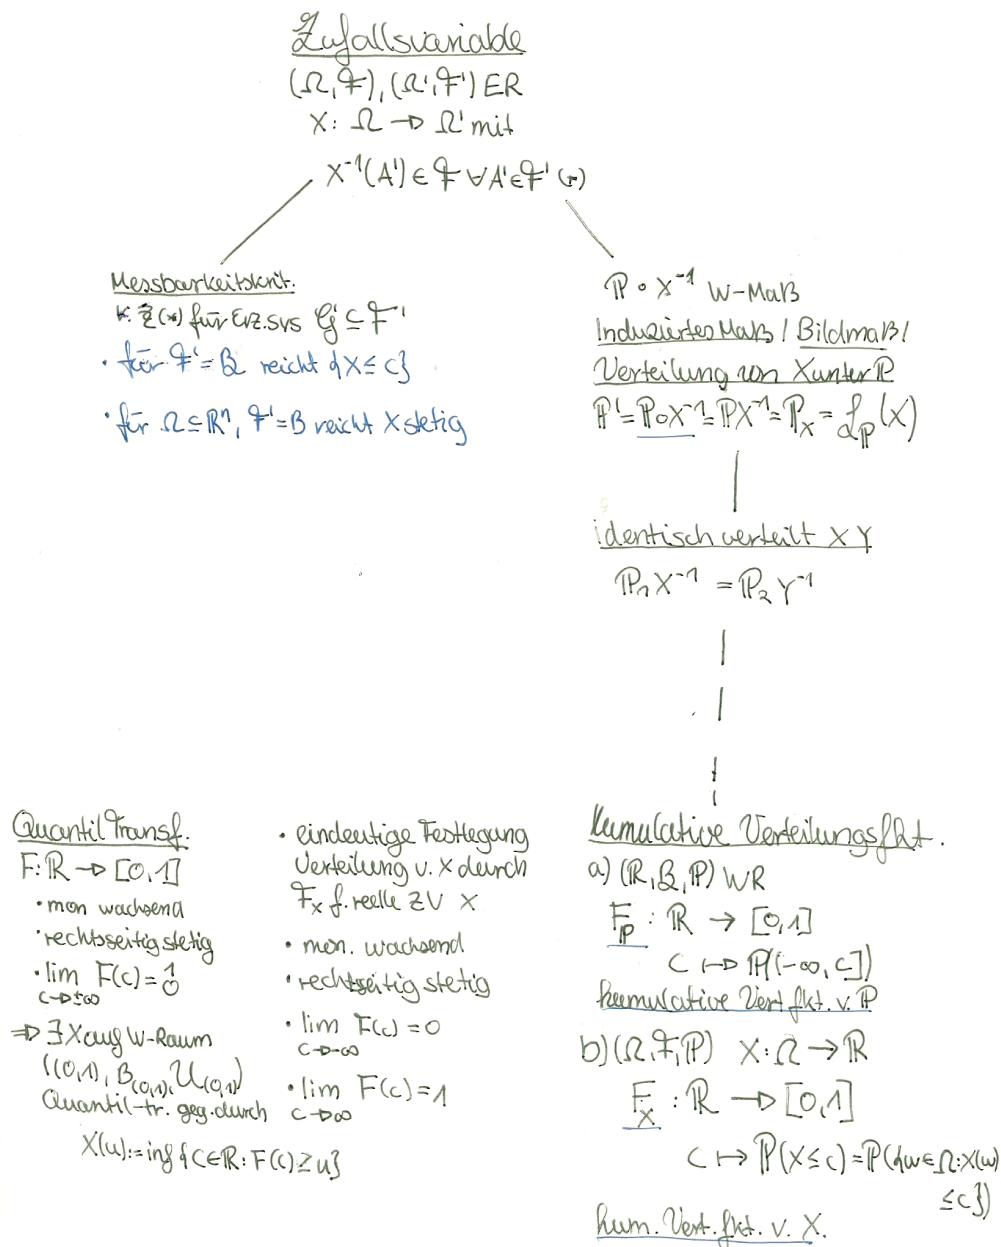 Zufallsvariable
(Ω, F), (Ω', F') ER
X: Ω → Ω' mit
X⁻¹(A') ∈ F ∀A'∈F' (*)
Messbarkeitskrit.
z.z. (*) für Erz.sys G' ⊆ F'
• für F' = B reicht {X ≤ c}
• für Ω ⊆ ℝⁿ, F' = B reicht X stetig
ℙ ∘ X⁻¹ W-Maß
Induziertes Maß / Bildmaß /
Verteilung von X unter ℙ
ℙ' = ℙ∘X⁻¹ = ℙX⁻¹ = ℙ_X = ℒ_ℙ(X)
identisch verteilt X Y
ℙ₁ X⁻¹ = ℙ₂ Y⁻¹
Quantil Transf.
F: ℝ → [0,1]
• mon wachsend
• rechtsseitig stetig
• lim F(c) = 1/0
c→±∞
⇒ ∃ X auf W-Raum
((0,1), B_(0,1), U_(0,1))
Quantil-tr. geg. durch
X(u) := inf {c∈ℝ: F(c) ≥ u}
• eindeutige Festlegung
Verteilung v. X durch
F_X f. reelle ZV X
• mon. wachsend
• rechtsseitig stetig
• lim F(c) = 0
c→-∞
• lim F(c) = 1
c→∞
Kumulative Verteilungsfkt.
a) (ℝ, B, ℙ) WR
F_ℙ : ℝ → [0,1]
c ↦ ℙ((-∞, c])
kumulative Vert.fkt. v. ℙ
b) (Ω, F, ℙ) X: Ω → ℝ
F_X : ℝ → [0,1]
c ↦ ℙ(X ≤ c) = ℙ({ω∈Ω: X(ω)
≤ c})
kum. Vert. fkt. v. X.